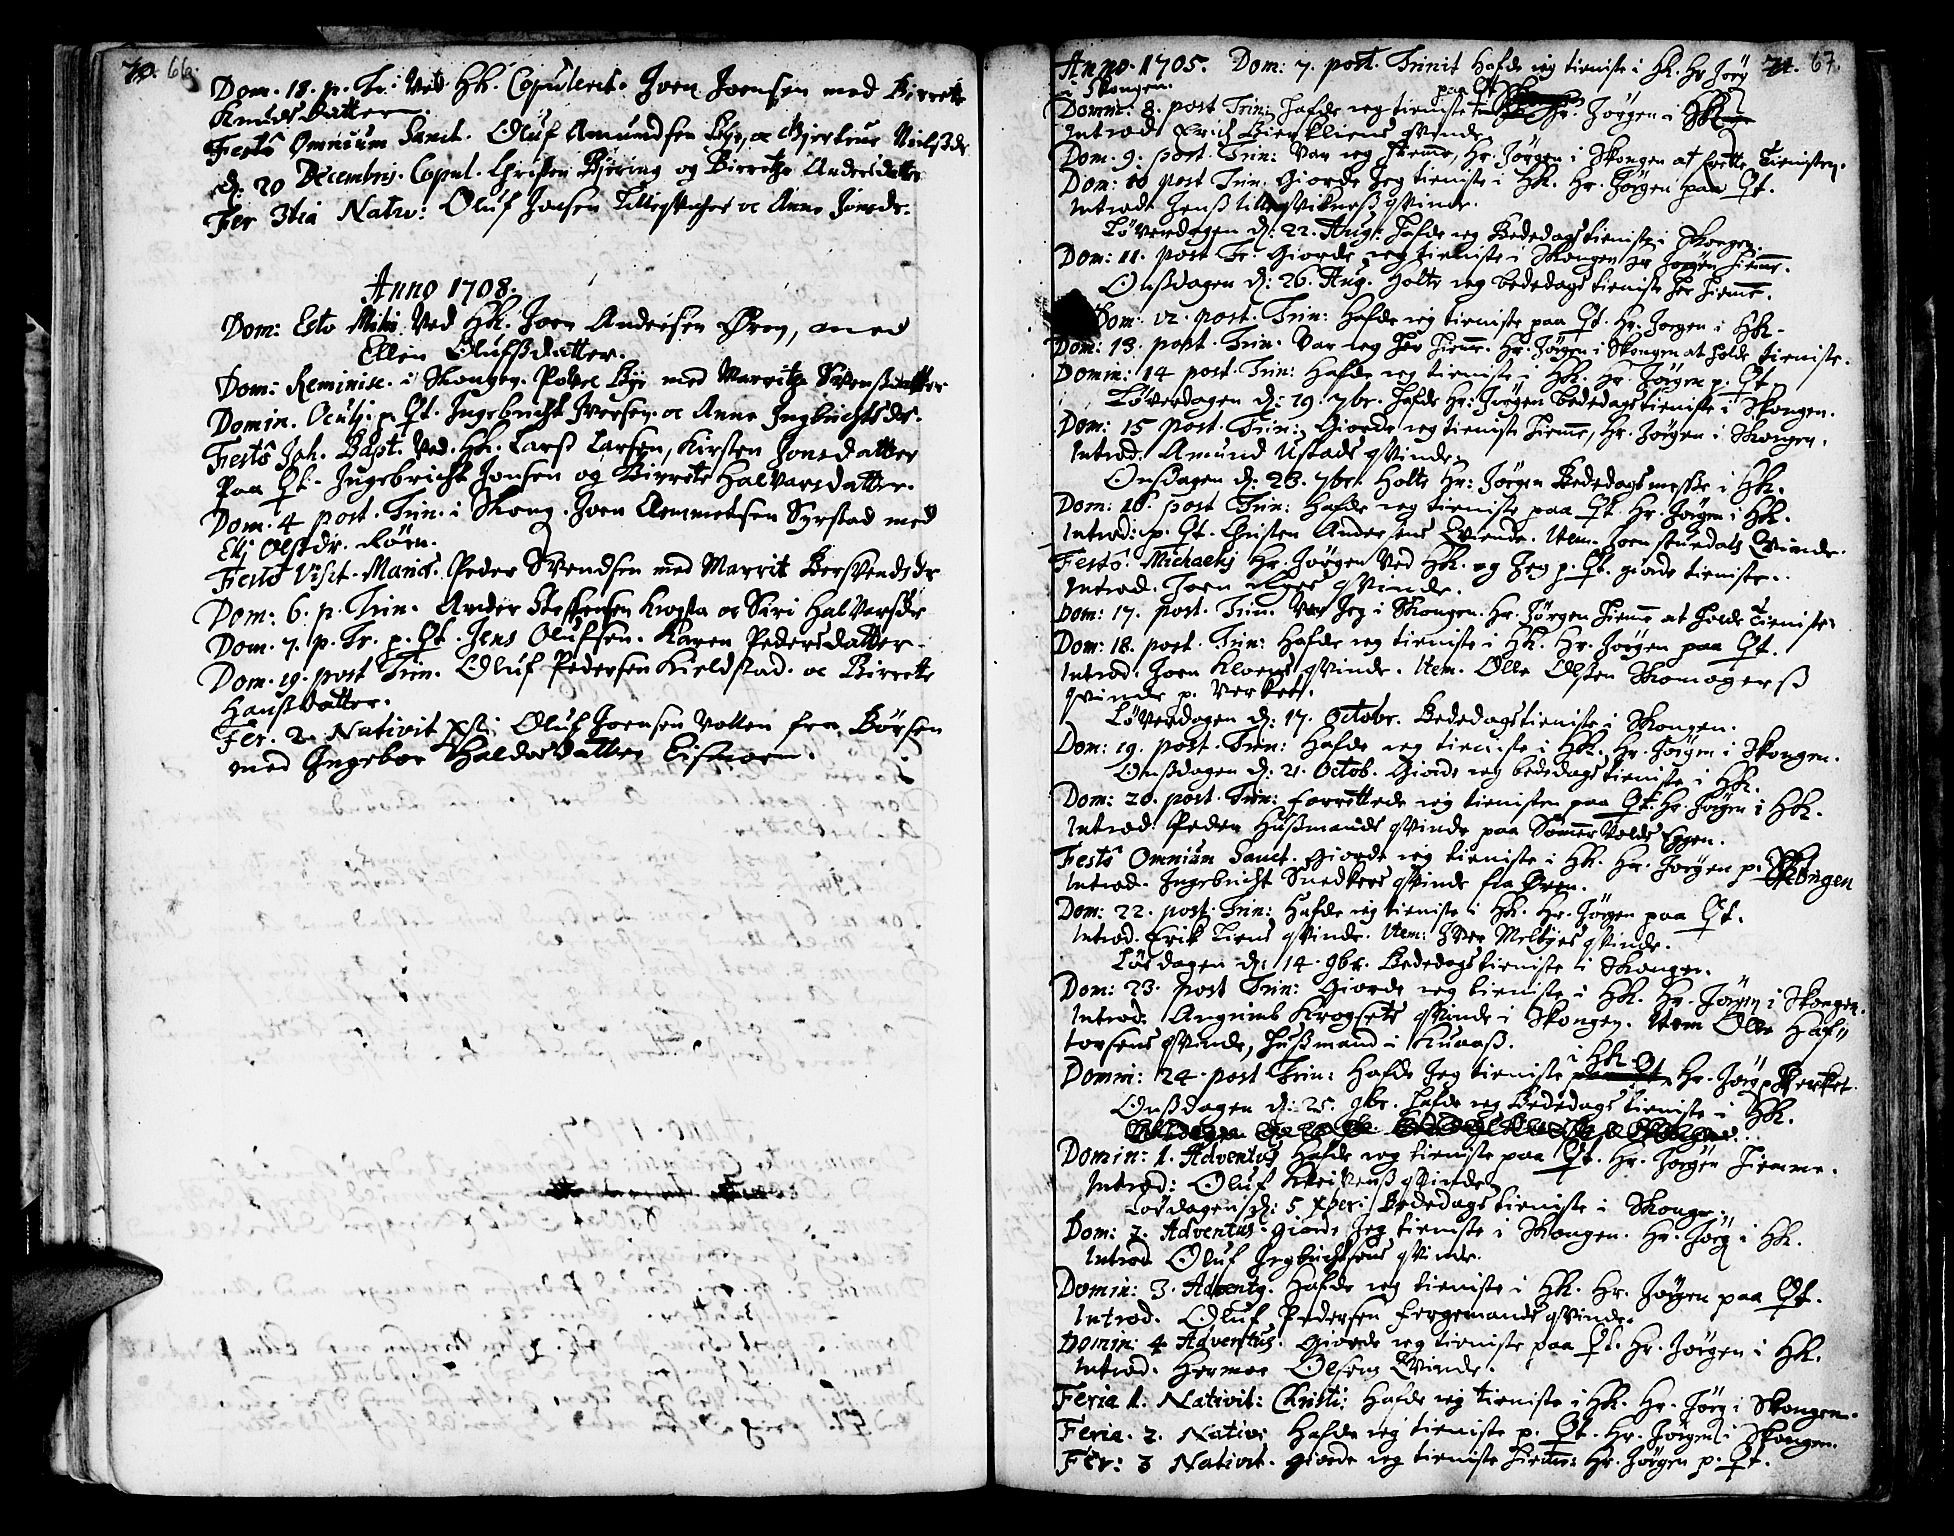 70. 66.
Dom. 18. p. Tr. Ved HK. Copulerit. Joen Joensen med Birrette
Knudsdatter
Festô Omnium Sanct. Oluf Amundsen
d. 20 Decembris. Copul. Christen Bjering og Birrette Andersdatter
Fer 3tia Nativ: Oluf Jonsen oc Anne Jonsdr.
Anno 1708.
Dom: Esto Mihi. Ved HK. Joen Andersen Øren, med
Ellen Olufsdatter.
Dom: Reminisc. i Skongen. Peder Bye med Marrite Svensdatter
Domin. Oculi. p. Qt. Ingebricht Iversen oc Anne Ingbrichtsdr.
Festô Joh. Bapt. Ved. HK. Larss Larsen, Kirsten Jonsdatter
Paa Qt. Ingebricht Jonsen og Birrete Halvarsdatter.
Dom. 4 post. Trin. i Skong. Joen Clemmetsen Syrstad med
Eli Olsdr. Röen.
Festô Visit. Mariæ. Peder Svendsen med Marrit Bersvendsdr
Dom: 6. p. Trin. Ander Steffensen Krogsta oc Siri Halvarsdr
Dom. 7. p. Tr. p. Qt. Jens Olufsen. Karen Pedersdatter.
Dom. 19. post Trin. Oluf Pedersen Kieldstad. oc Birrette
Hanssdatter.
Fer. 2. Nativit Xsti Oluf Joensen Volten fra Börsen
med Ingebor Haldosdatter Eismoen.
Anno 1705. Dom: 7. post. Trinit Hafde ieg tieniste i HK. Hr Jörg 71. 67.
i Skongen. paa Qt
Domin: 8. post Trin: Hafde ieg tieniste Hr. Jörgen i HK
Introd. Erich Bierkliens qvinde
Dom. 9. post. Trin: Var ieg hiemme, Hr. Jörgen i Skongen at forette tienisten.
Dom: 10 post Trin. Giorde Jeg tieniste i HK. Hr. Jörgen paa Qt.
Introd. Henss qvinde.
Löverdagen d: 22. Aug: Hafde ieg Bededagstieniste i Skongen.
Dom: 11. post Tr: Giorde ieg tieniste i Skongen Hr Jörgen hiemme.
Onssdagen d: 26. Aug. Holte ieg bededags tieniste her hiemme.
Dom: 12. post. Trin: Hafde ieg tieniste paa Qt. Hr. Jörgen i HK.
Dom: 13. post. Trin. Var ieg her hiemme. Hr. Jörgen i Skongen at holde tieniste.
Domin: 14 post. Trin: Hafde ieg tieniste i HK. Hr. Jörgen p. Qt.
Löverdagen d: 19. 7br. Hafde Hr: Jörgen bededagstieniste i Skongen.
Dom: 15 post. Trin: Giorde ieg tieniste hiemme, Hr. Jörgen i Skongen.
Introd. Amund Ustads qvinde.
Onsdagen d: 23. 7br. Holte Hr: Jörgen Bededags messe i HK.
Dom: 16. post Trin: Hafde ieg tieniste paa Qt. Hr. Jörgen i HK.
Introd: p. Qt. Christen Andersens Qvinde. Item. Joen Qvinde.
Festô Michaelis Hr. Jörgen Ved HK. og Jeg p. Qt. giorde tieniste.
Introd. Joen qvinde.
Dom: 17. post. Trin. Var Jeg i Skongen. Hr. Jörgen hiemme at holde tieniste.
Dom: 18. post. Trin: Hafde ieg tieniste i HK. Hr. Jörgen paa Qt.
Introd. Joen Kloens qvinde. Item. Olle Olsten Skomagerss
qvinde p. Verket.
Löverdagen d: 17. Octobr. Bededagstieniste i Skongen.
Dom: 19. post. Trin: Hafde ieg tieniste i HK. Hr. Jörgen i Skongen.
Onssdagen d: 21. Octob. Giorde ieg bededags tieniste i HK.
Dom: 20. post. Trin: Forrettede ieg tienisten paa Qt. Hr. Jörgen i HK.
Introd. Peder Hussmands qvinde paa Sommervolds Eggen.
Festô Omnium Sanct. Giorde ieg tieniste i HK. Hr. Jörgen p. Skongen
Introd. Ingebricht Snedkers qvinde fra Øren.
Dom: 22. post. Trin: Hafde ieg tieniste i HK. Hr. Jörgen paa Qt.
Introd. Erik Liens qvinde. Item: Iver Melbyes qvinde.
Lösdagen d: 14. 9br. Bededags tieniste i Skongen.
Dom: 23. post Trin: Giorde ieg tieniste i HK. Hr. Jörgen i Skongen.
Introd: Angrims Krogsets qvinde i Skongen. Item Olle Haf
torsens qvinde, hussmand i
Domin: 24. post Trin: Hafde Jeg tieniste i HK. Hr. Jörg p Verket.
Onssdagen d: 25. 9br. hafde ieg Bededags tieniste i HK.
Domin: 1. Adventus Hafde ieg tieniste paa Qt. Hr. Jörgen hiemme.
Introd: Oluf qvinde
Lösdagen d: 5. Xbri Bededags tieniste i Skongen.
Dom: 2. Adventus. Giorde Jeg tieniste i Skongen. Hr. Jörg i HK.
Introd Oluf Ingbrichtsens qvinde.
Domin: 3. Advent9. Hafde ieg tieniste i HK. Hr. Jörgen paa Qt.
Introd. Oluf Pedersen Fergemands qvinde.
Domin: 4 Adventus. Giorde ieg tieniste paa Qt. Hr. Jörgen i HK.
Introd. Hermoe Olsens Qvinde.
Feria 1. Nativit: Christi: Hafde ieg tieniste i HK. Hr. Jörg i Skongen.
Feria. 2. Nativ: Hafde ieg tieniste p. Qt. Hr. Jörgen i Skongen.
Fer: 3 Nativit. Giorde ieg tieniste hiemme Hr. Jörgen p. Qt.